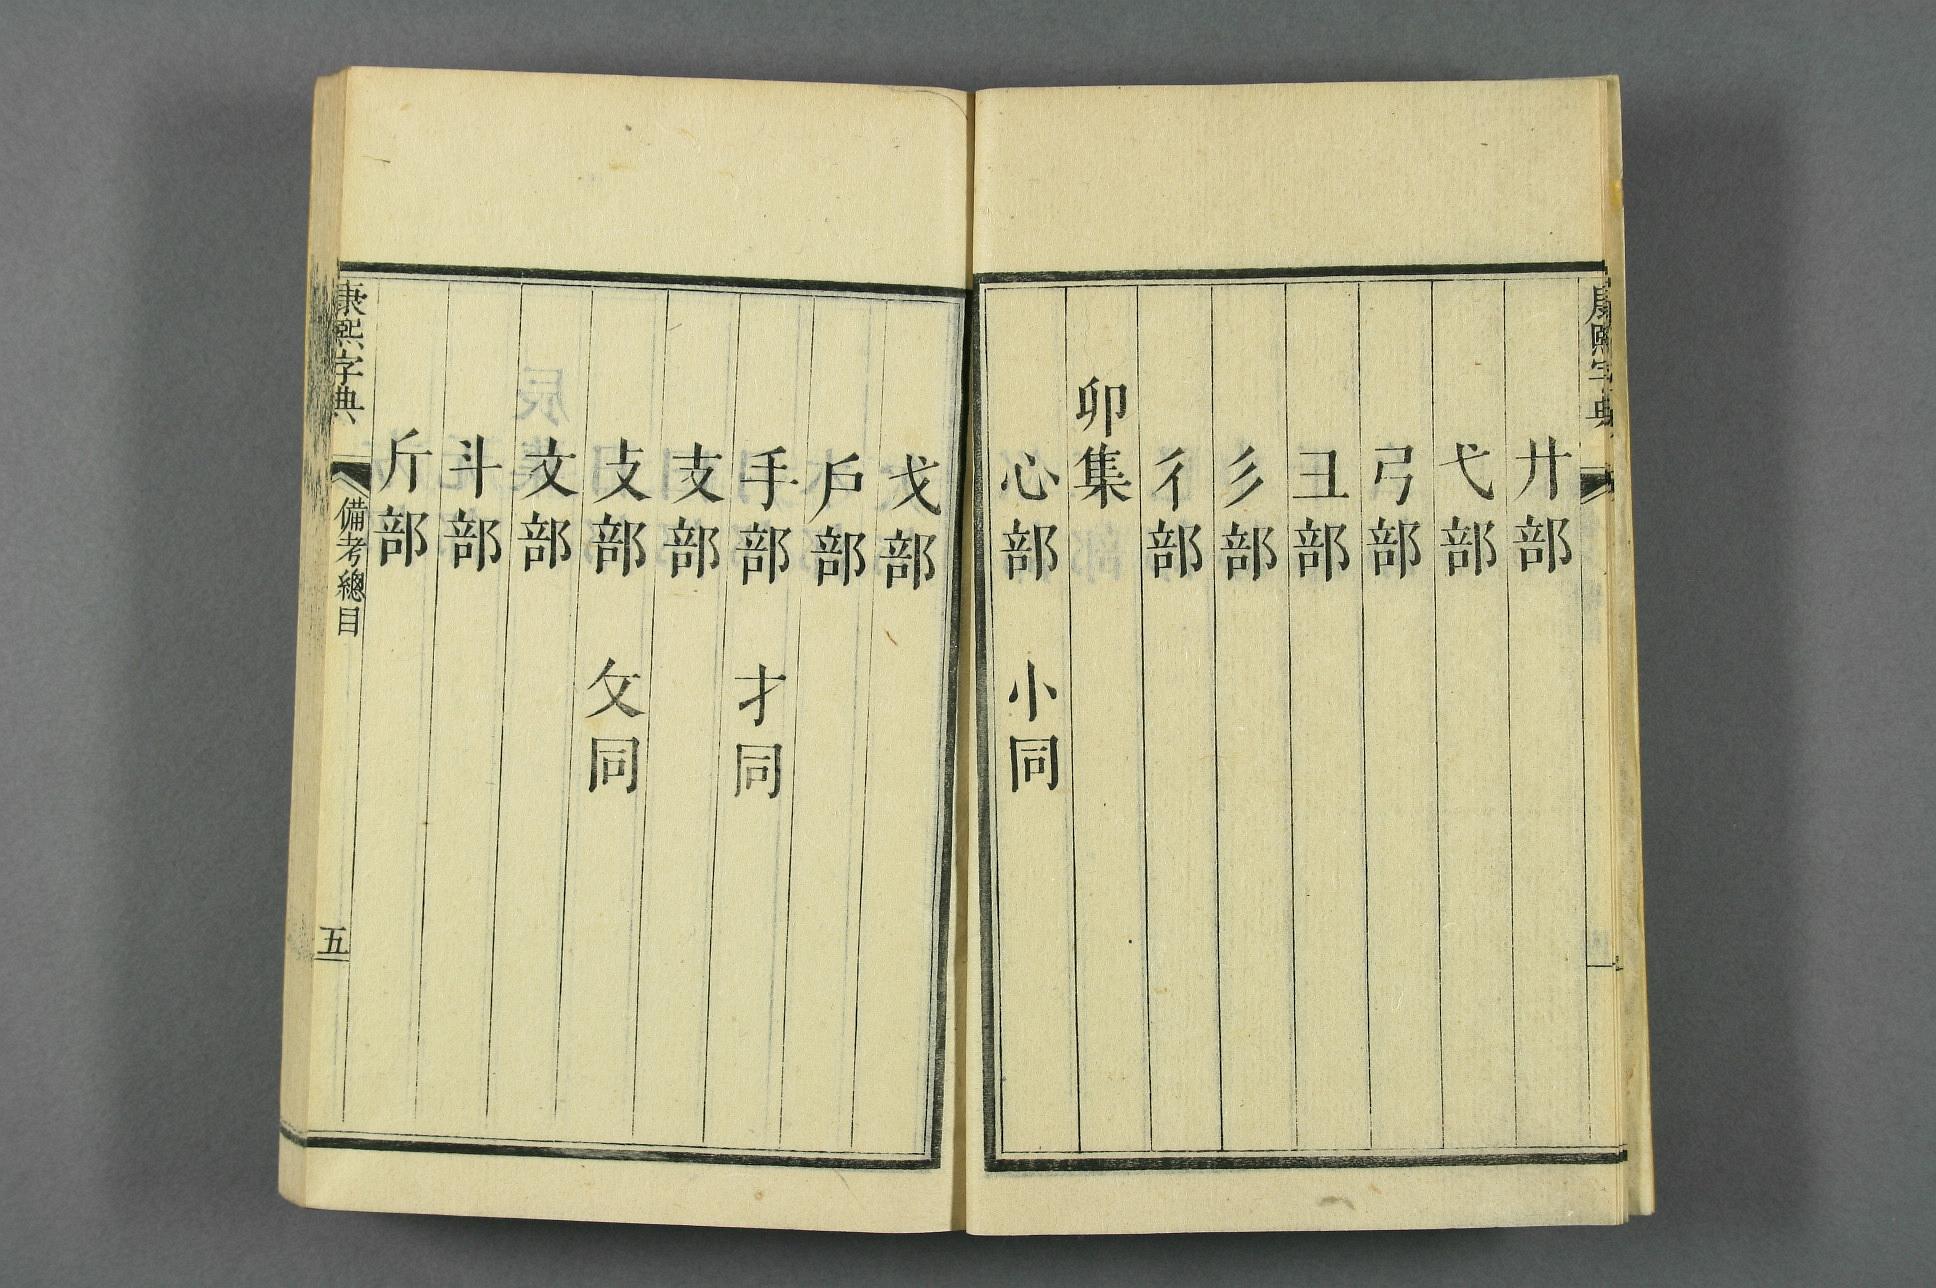 康熙字典
廾部
弋部
弓部
彐部
彡部
彳部
卯集
心部 小同
戈部
戶部
手部 才同
支部
攴部 攵同
文部
斗部
斤部
康熙字典 備考總目 五